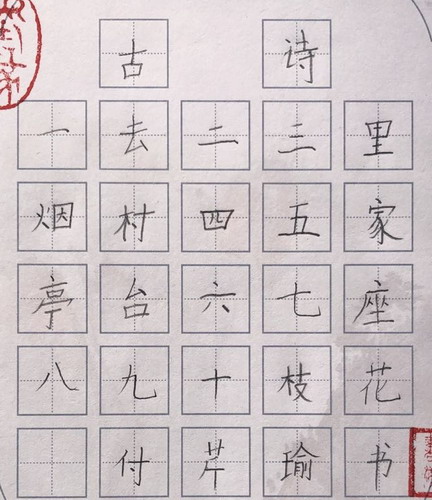 古诗
一去二三里
烟村四五家
亭台六七座
八九十枝花
付芹瑜书